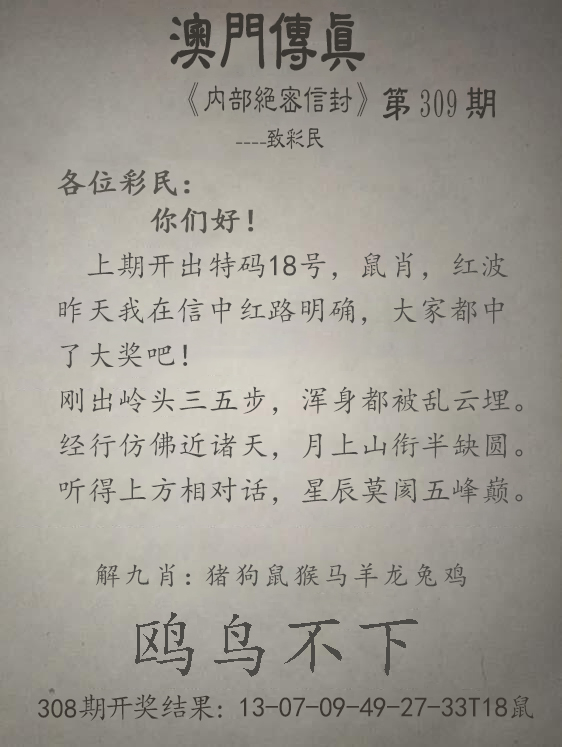 澳門傳真
《内部絕密信封》第309期
----致彩民
各位彩民：
你们好！
上期开出特码18号，鼠肖，红波
昨天我在信中红路明确，大家都中
了大奖吧！
刚出岭头三五步，浑身都被乱云埋。
经行仿佛近诸天，月上山衔半缺圆。
听得上方相对话，星辰莫阂五峰巅。
解九肖：猪狗鼠猴马羊龙兔鸡
鸥鸟不下
308期开奖结果：13-07-09-49-27-33T18鼠